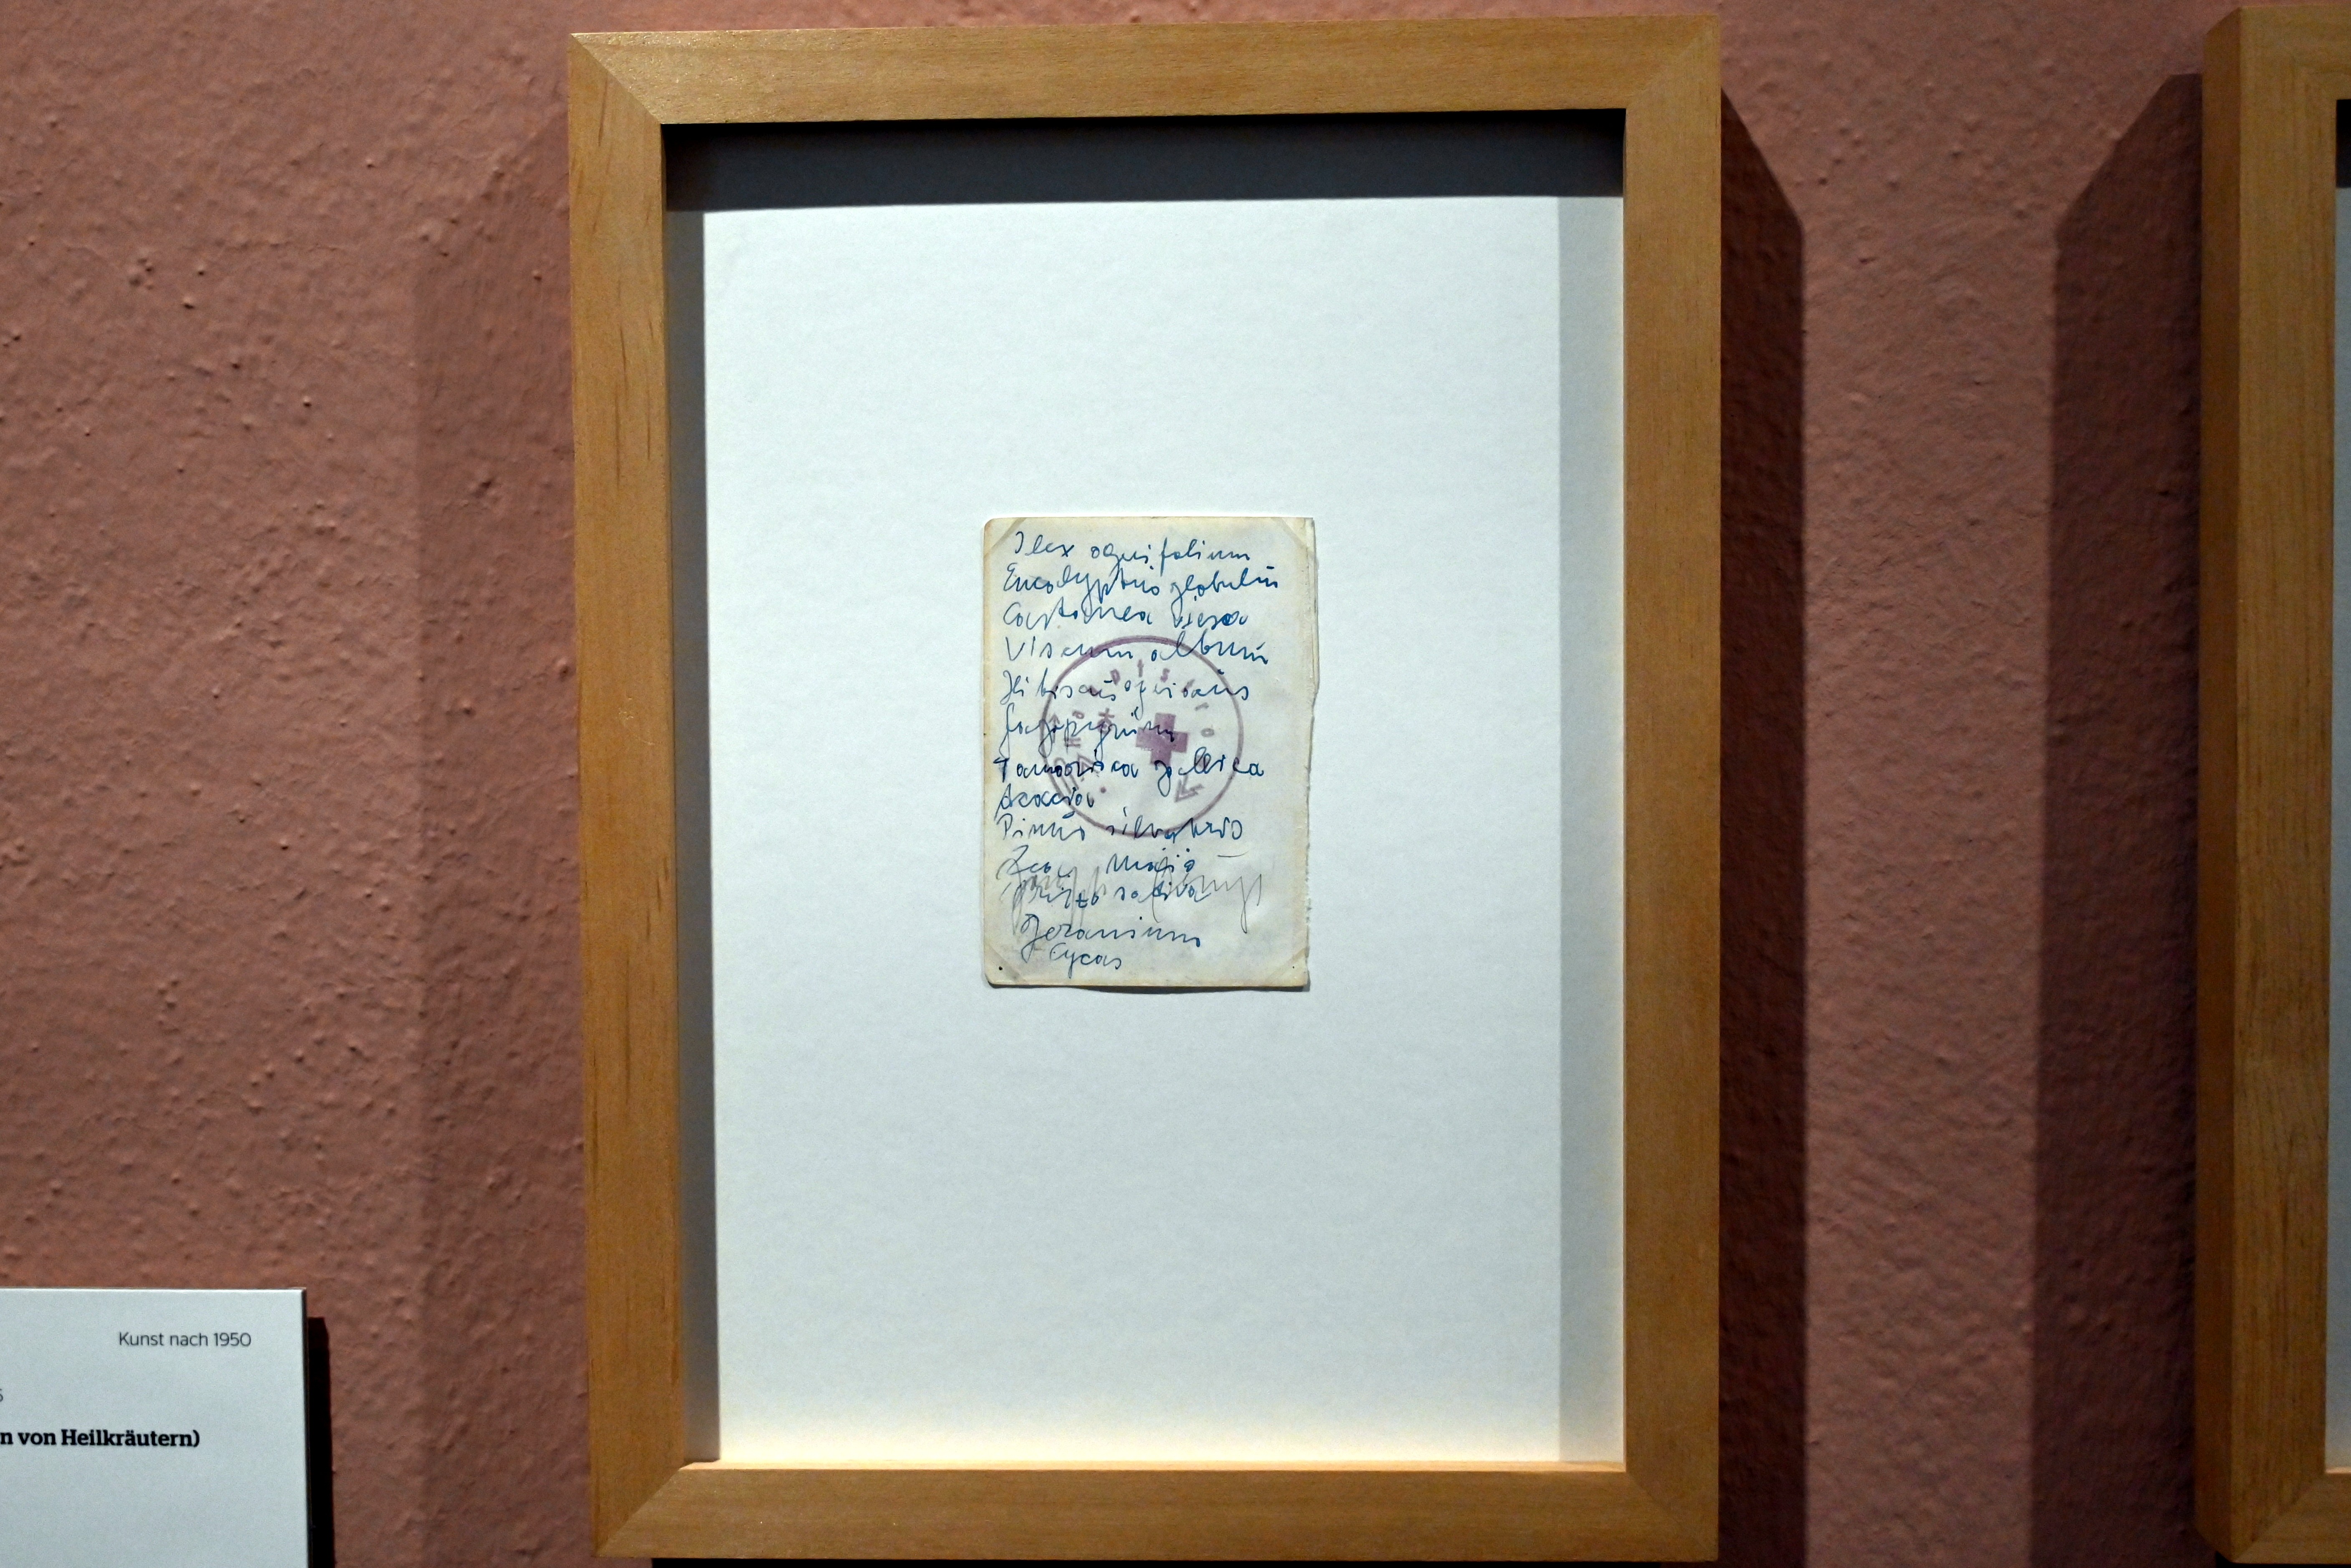 Ilex aquifolium
Eucalyptus globulus
Castanea vesca
Viscum album
Hibiscus
Fagopyrum
Tamariska gallica
Akacia
Pinus silvestris
Zea Maija
sativa
Geranium
Cycas
Kunst nach 1950
n von Heilkräutern)